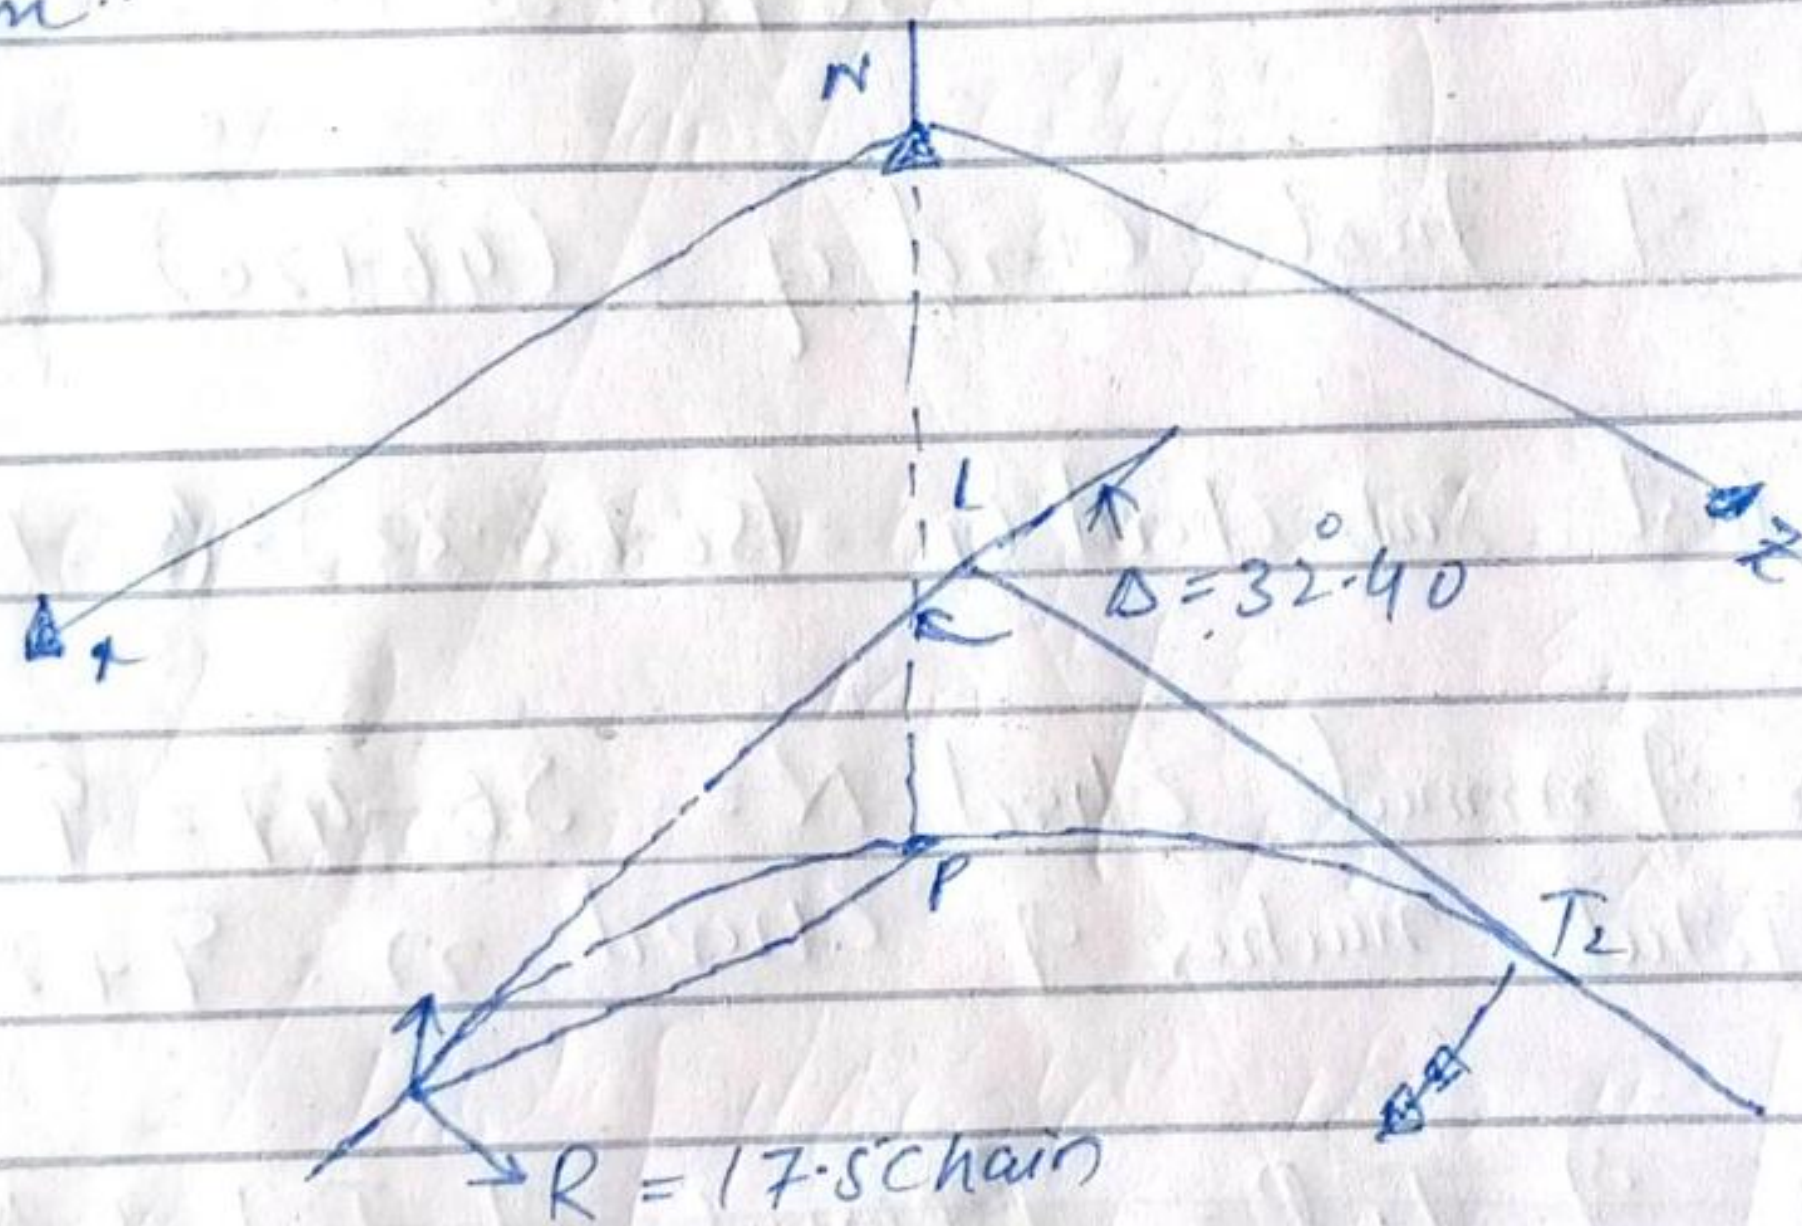 N
L
Δ = 32°.40
Z
x
P
T2
R = 17.5 chain